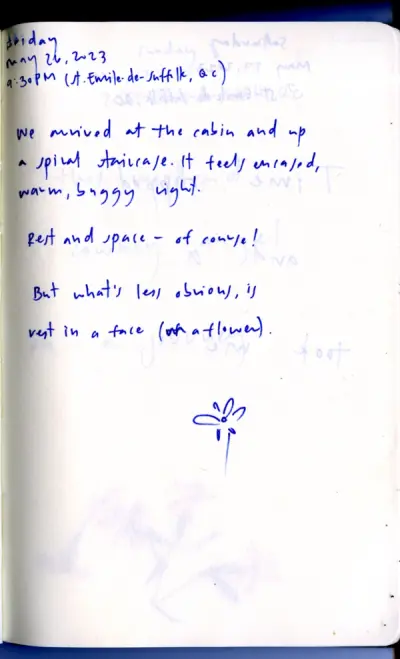 Friday
May 26, 2023
9:30PM (St. Émile-de-Suffolk, Qc)
We arrived at the cabin and up
a spiral staircase. It feels encased,
warm, buggy night.
Rest and space – of course!
But what's less obvious, is
rest in a face (of a flower).